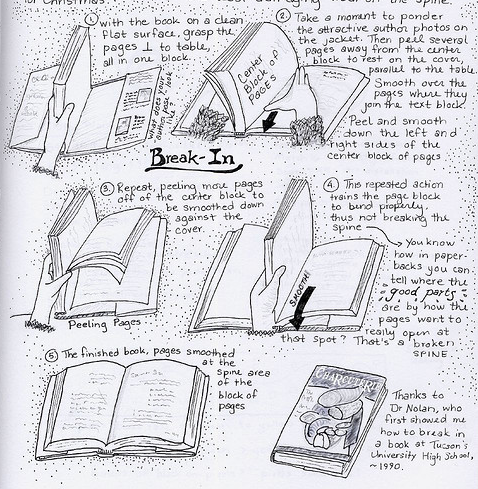 for Christmas.
the spine.
① With the book on a clean
flat surface, grasp the
pages ⊥ to table,
all in one block.
What does your
author page look
like?
② Take a moment to ponder
the attractive author photos on
the jacket. Then peel several
pages away from the center
block to rest on the cover,
parallel to the table.
Smooth over the
pages where they
join the text block.
Peel and smooth
down the left and
right sides of the
center block of pages
Center
Block of
PAGES
Break-In
③ Repeat, peeling more pages
off of the center block to
be smoothed down
against the
cover.
Peeling Pages
④ This repeated action
trains the page block
to bend properly,
thus not breaking the
spine
You know
how in paper-
backs you can
tell where the
"good parts"
are by how the
pages want to
really open at
that spot? That's a broken
SPINE.
SMOOTH!
⑤ The finished book, pages smoothed
at the
spine area
of the
block of
pages
CHARCUTERIE
Thanks to
Dr Nolan, who
first showed me
how to break in
a book at Tucson's
University High School,
~1990.